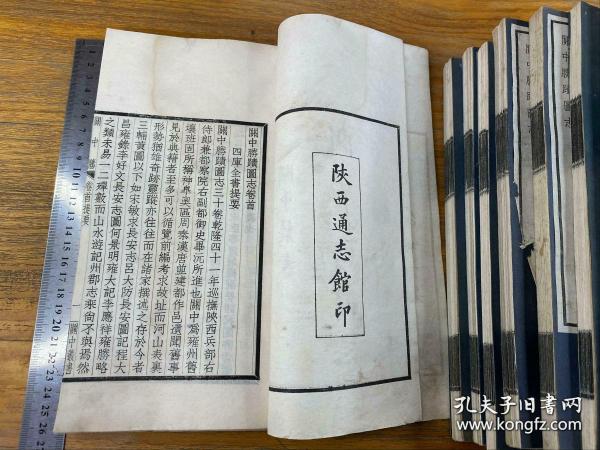 陝西通志館印
關中勝蹟圖志卷首
四庫全書提要
關中勝蹟圖志三十卷乾隆四十一年巡撫陝西兵部右
侍郎兼都察院右副都御史畢沅所進也關中爲雍州舊
壤班固所稱神皋奧區周秦漢唐並建都作邑遺聞舊事
見於典籍者至多可以循覽前編考求故址而河山表裏
形勢雄奇跡靈蹤亦往往而在諸家撰述之存於今者
三輔黃圖以下如宋敏求長安志呂大防長安圖記程大
昌雍錄李好文長安志圖何景明雍大記李應祥雍勝略
之類未易一二殫數而山水遊記州郡志乘尙不與焉然
關中勝
卷首提要
一
關中叢書
關中勝蹟圖志
關中勝蹟圖志
孔夫子旧书网
www.kongfz.com